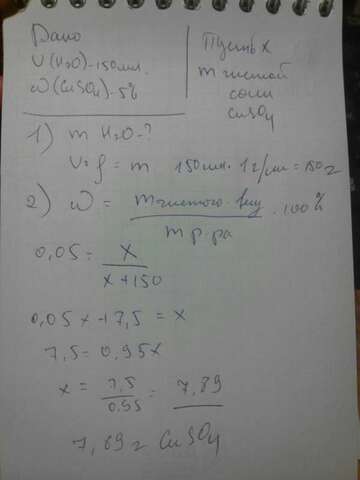 Дано
V(H₂O)-150мл.
ω(CuSO₄)-5%
Пусть x
m чистой
соли
CuSO₄
1) m H₂O-?
V·ρ = m 150мл · 1 г/мл = 150г
2) ω = m чистого вещ / m р-ра · 100%
0,05 = x / x+150
0,05x + 7,5 = x
7,5 = 0,95x
x = 7,5 / 0,95 = 7,89
7,89г CuSO₄